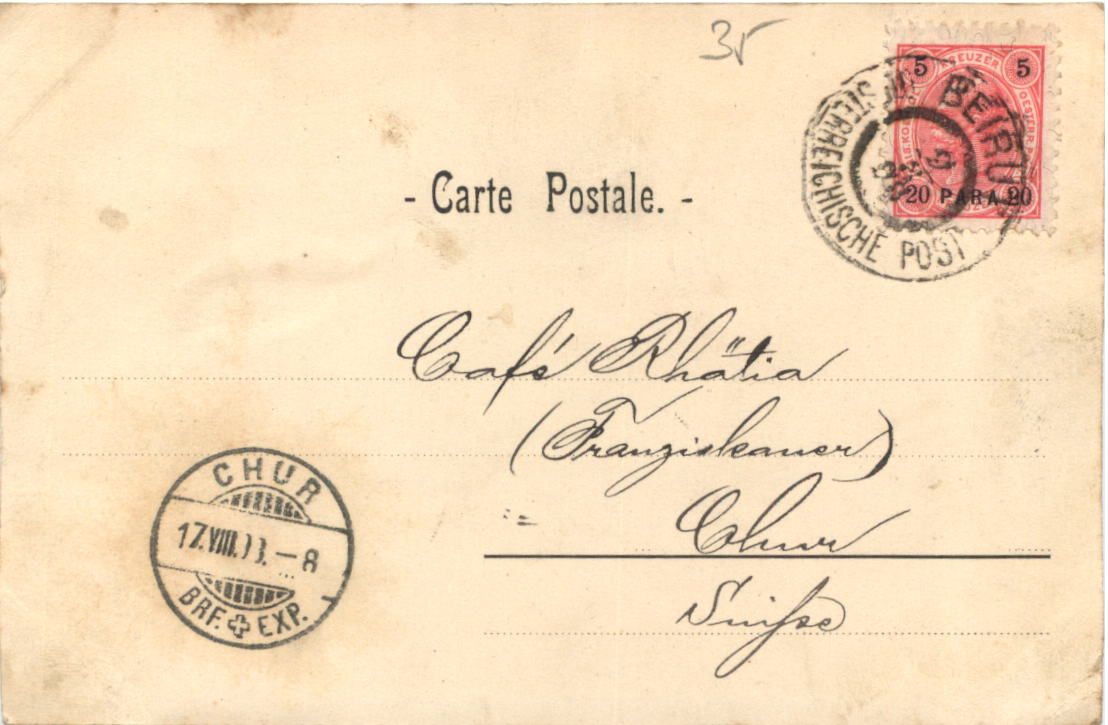 35
5 KREUZER 5
20 PARA 20
BEIRUT
OESTERREICHISCHE POST
- Carte Postale. -
Café Rhätia
(Franziskaner)
Chur
Suisse
CHUR
17.VIII. – 8
BRF. EXP.